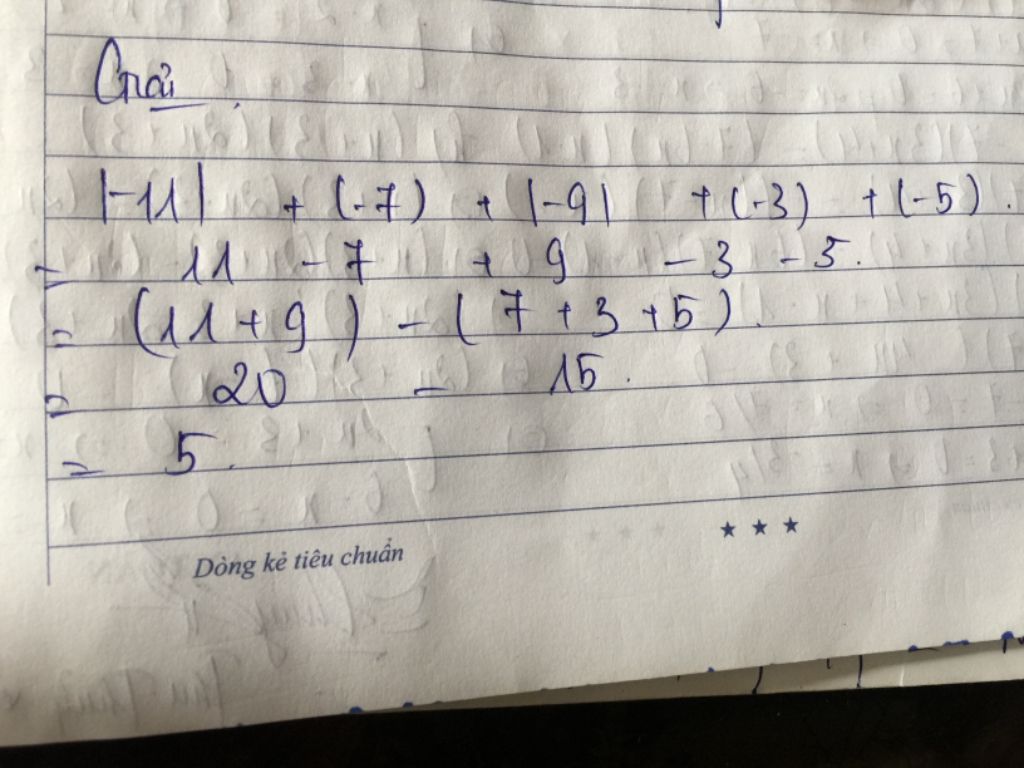 Giải
|-11| + (-7) + |-9| + (-3) + (-5).
= 11 - 7 + 9 - 3 - 5.
= (11 + 9) - (7 + 3 + 5).
= 20 - 15.
= 5.
★ ★ ★
Dòng kẻ tiêu chuẩn